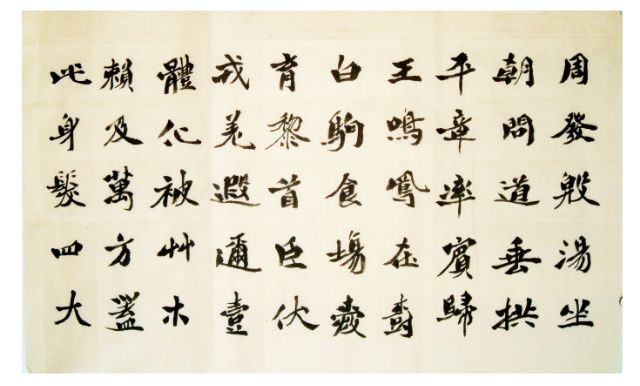 周發殷湯坐
朝問道垂拱
平章率賓歸
王鳴鳳在
白駒食場愛
育黎首臣伏
戎羌遐邇壹
體化被艸木
賴及萬方蓋
此身髮四大